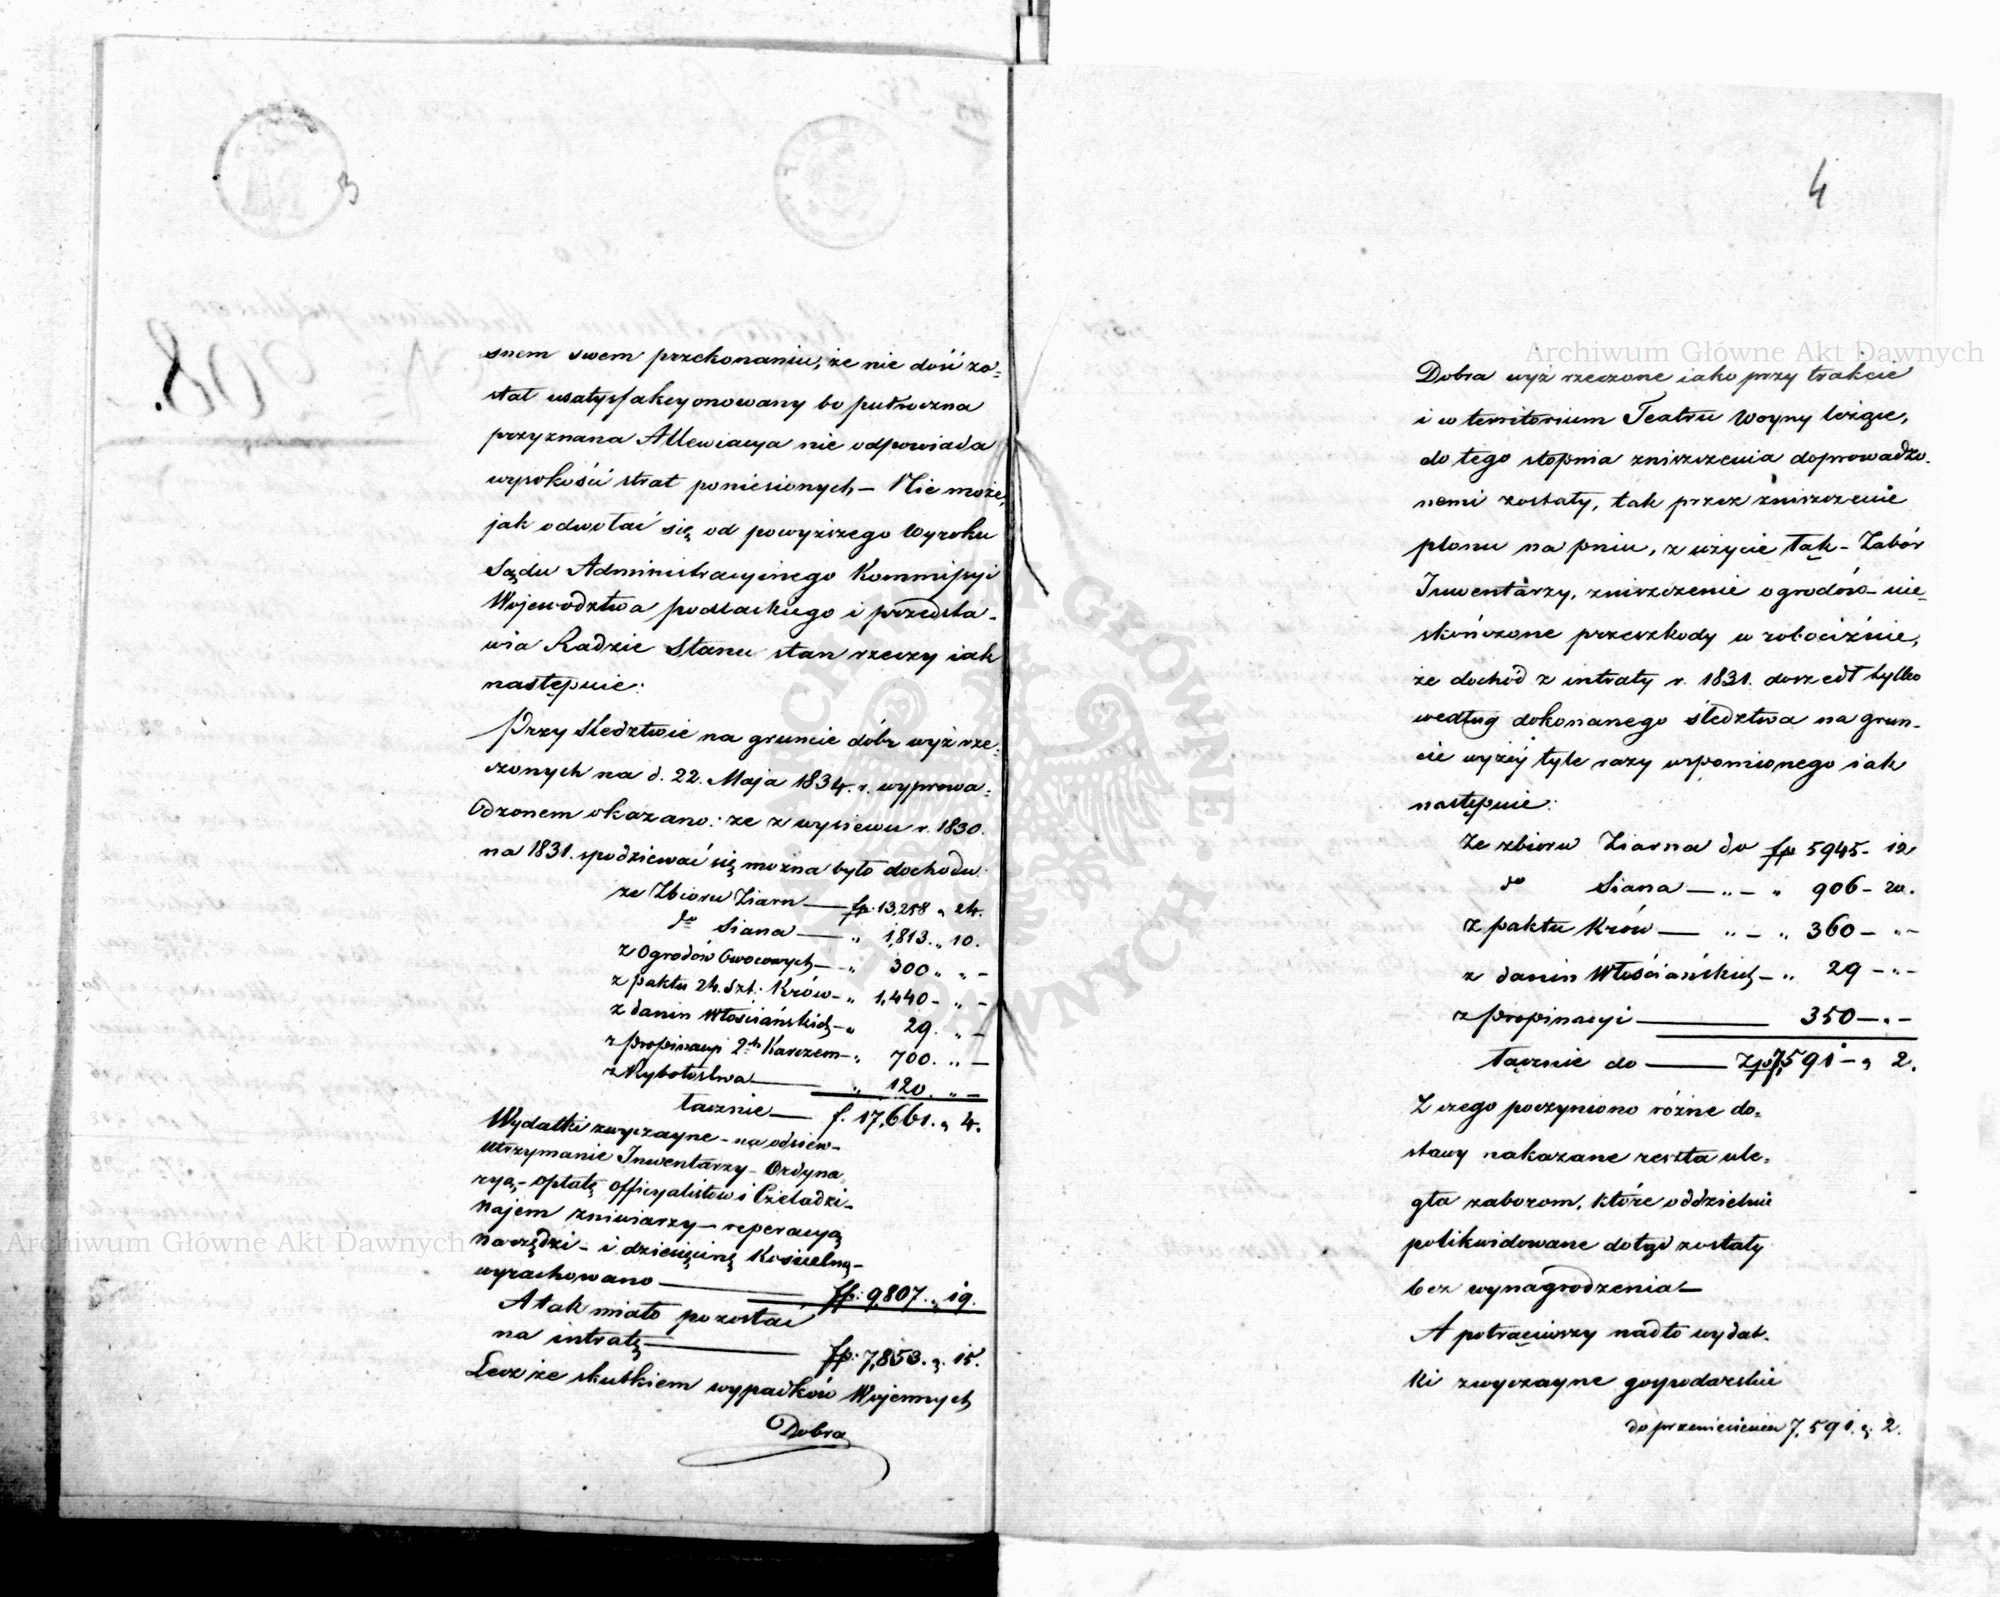 3
snem swem przekonaniu, że nie dość zo=
stał usatysfakcyonowany bo półroczna
przyznana Allewiacya nie odpowiada
wysokości strat poniesionych – Nie może,
jak odwołać się od powyższego Wyroku
Sądu Administracyinego Kommissyi
Województwa podlaskiego i przedsta-
wia Radzie Stanu stan rzeczy iak
następuie:
Przy śledztwie na gruncie dóbr wyż rze=
czonych na d. 22. Maja 1834. r. wyprowa=
dzonem okazano: że z wysiewu r. 1830.
na 1831. spodziewać się można było dochodu:
ze Zbioru Ziarn — fp. 13,258 „ 24.
do Siana — „ 1,813. „ 10.
z Ogrodów Owocowych — „ 300 „ „ –
z paktu 24. Szt: Krów – „ 1,440 – „ –
z danin Włościańskich – „ 29. „ –
z propinacyi 2ch Karczem – „ 700. „ –
z Rybołostwa — „ 120. „ –
łącznie — f. 17,661. „ 4.
Wydatki zwyczayne – na odsiew –
utrzymanie Inwentarzy – Ordyna
ryą, – opłatę officyalistów i Czeladzi –
najem żniwiarzy – reperacyą
narzędzi – i dziesięcinę Kościelną –
wyrachowano — fp: 9,807. „ 19.
A tak miało pozostać
na intratę — fp: 7,853. „ 15.
Lecz że skutkiem wypadków Wojennych
Dobra
4
Dobra wyż rzeczone iako przy trakcie
i w territorium Teatru Woyny leżące,
do tego stopnia zniszczenia doprowadzo.
nemi zostały, tak przez zniszczenie
plonu na pniu, zużycie łąk – Zabór
Inwentarzy, zniszczenie ogrodów – nie=
skończone przeszkody w robociźnie,
że dochód z intraty r. 1831. doszedł tylko
według dokonanego śledztwa na grun-
cie wyżéy tyle razy wspomionego iak
następuie:
Ze zbioru Ziarna do fp 5945 – 12
do Siana — „ – „ 906 – 20.
Z paktu Krów — „ – „ 360 – „ –
z danin Włościańskich – „ 29 – „ –
z propinacyi — 350 – „ –
łącznie do — Zp 7,591 – „ 2.
Z czego poczyniono różne do=
stawy nakazane reszta ule=
gła zaborom, które oddzielnie
polikwidowane dotąd zostały
bez wynagrodzenia —
A potrąciwszy nadto wydat.
ki zwyczayne gospodarskie
do przeniesienia 7,591. „ 2.
Archiwum Główne Akt Dawnych
Archiwum Główne Akt Dawnych
ARCHIWUM GŁÓWNE AKT DAWNYCH